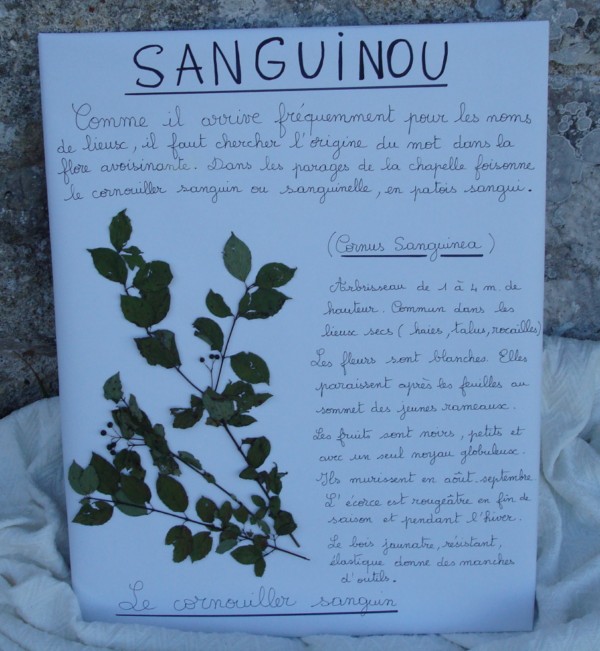 SANGUINOU
Comme il arrive fréquemment pour les noms
de lieux, il faut chercher l'origine du mot dans la
flore avoisinante. Dans les parages de la chapelle foisonne
le cornouiller sanguin ou sanguinelle, en patois sangui.
(Cornus Sanguinea)
Arbrisseau de 1 à 4 m. de
hauteur. Commun dans les
lieux secs (haies, talus, rocailles)
Les fleurs sont blanches. Elles
paraissent après les feuilles au
sommet des jeunes rameaux.
Les fruits sont noirs, petits et
avec un seul noyau globuleux.
Ils murissent en août. septembre.
L'écorce est rougeâtre en fin de
saison et pendant l'hiver.
Le bois jaunatre, résistant,
élastique donne des manches
d'outils.
Le cornouiller sanguin